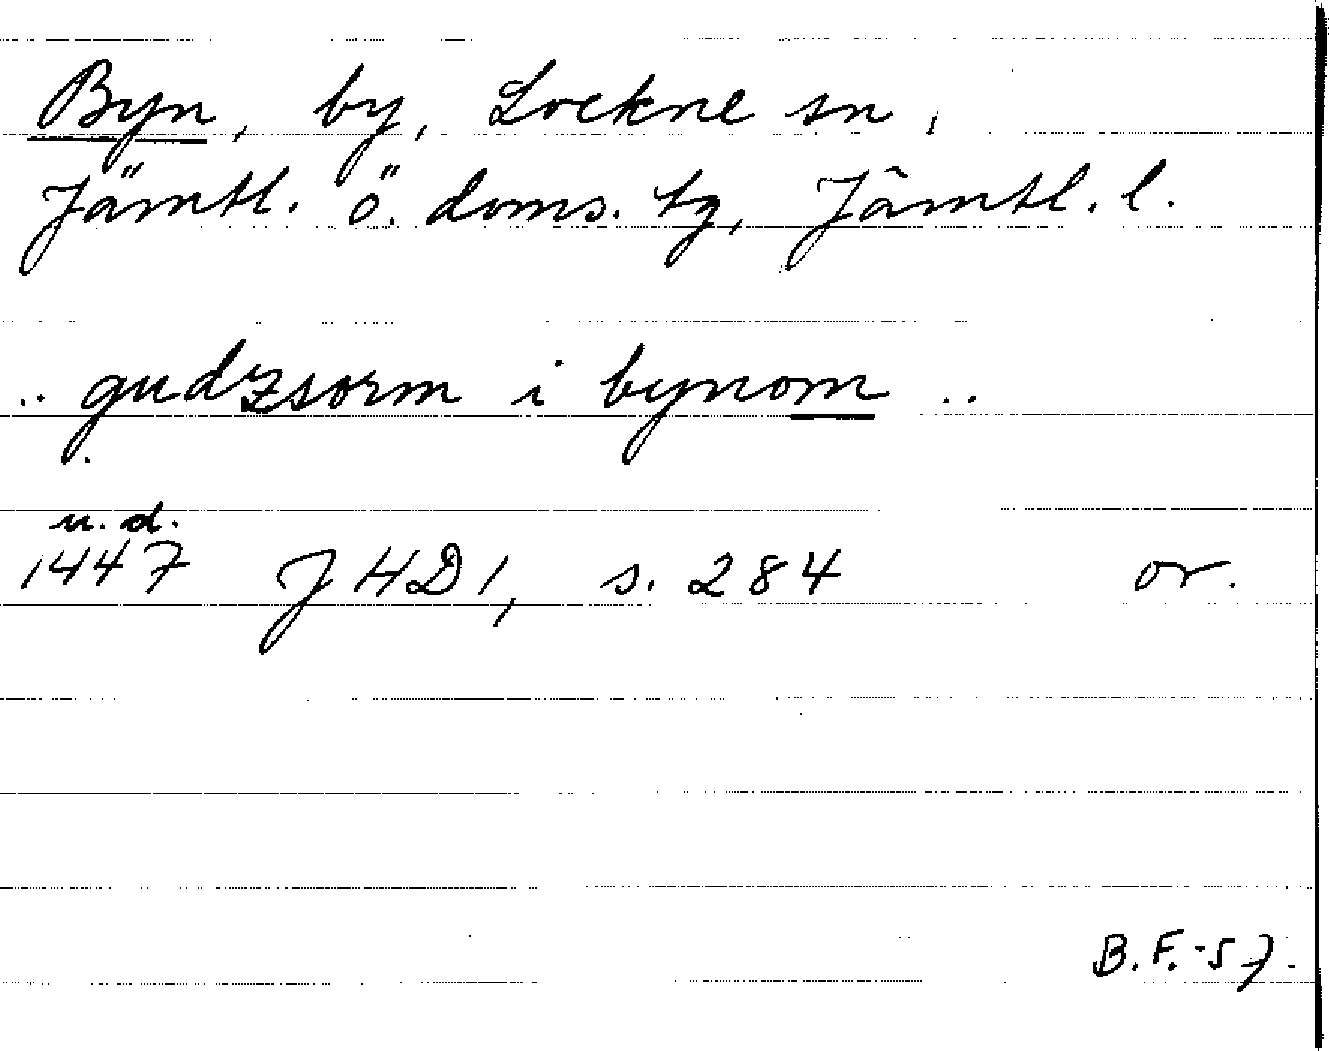 Byn, by, Lockne sn,
Jämtl. ö. doms. tg, Jämtl. l.
.. gudzsorm i bynom ..
u. d.
1447 JHD 1, s. 284 or.
B.F.-57.